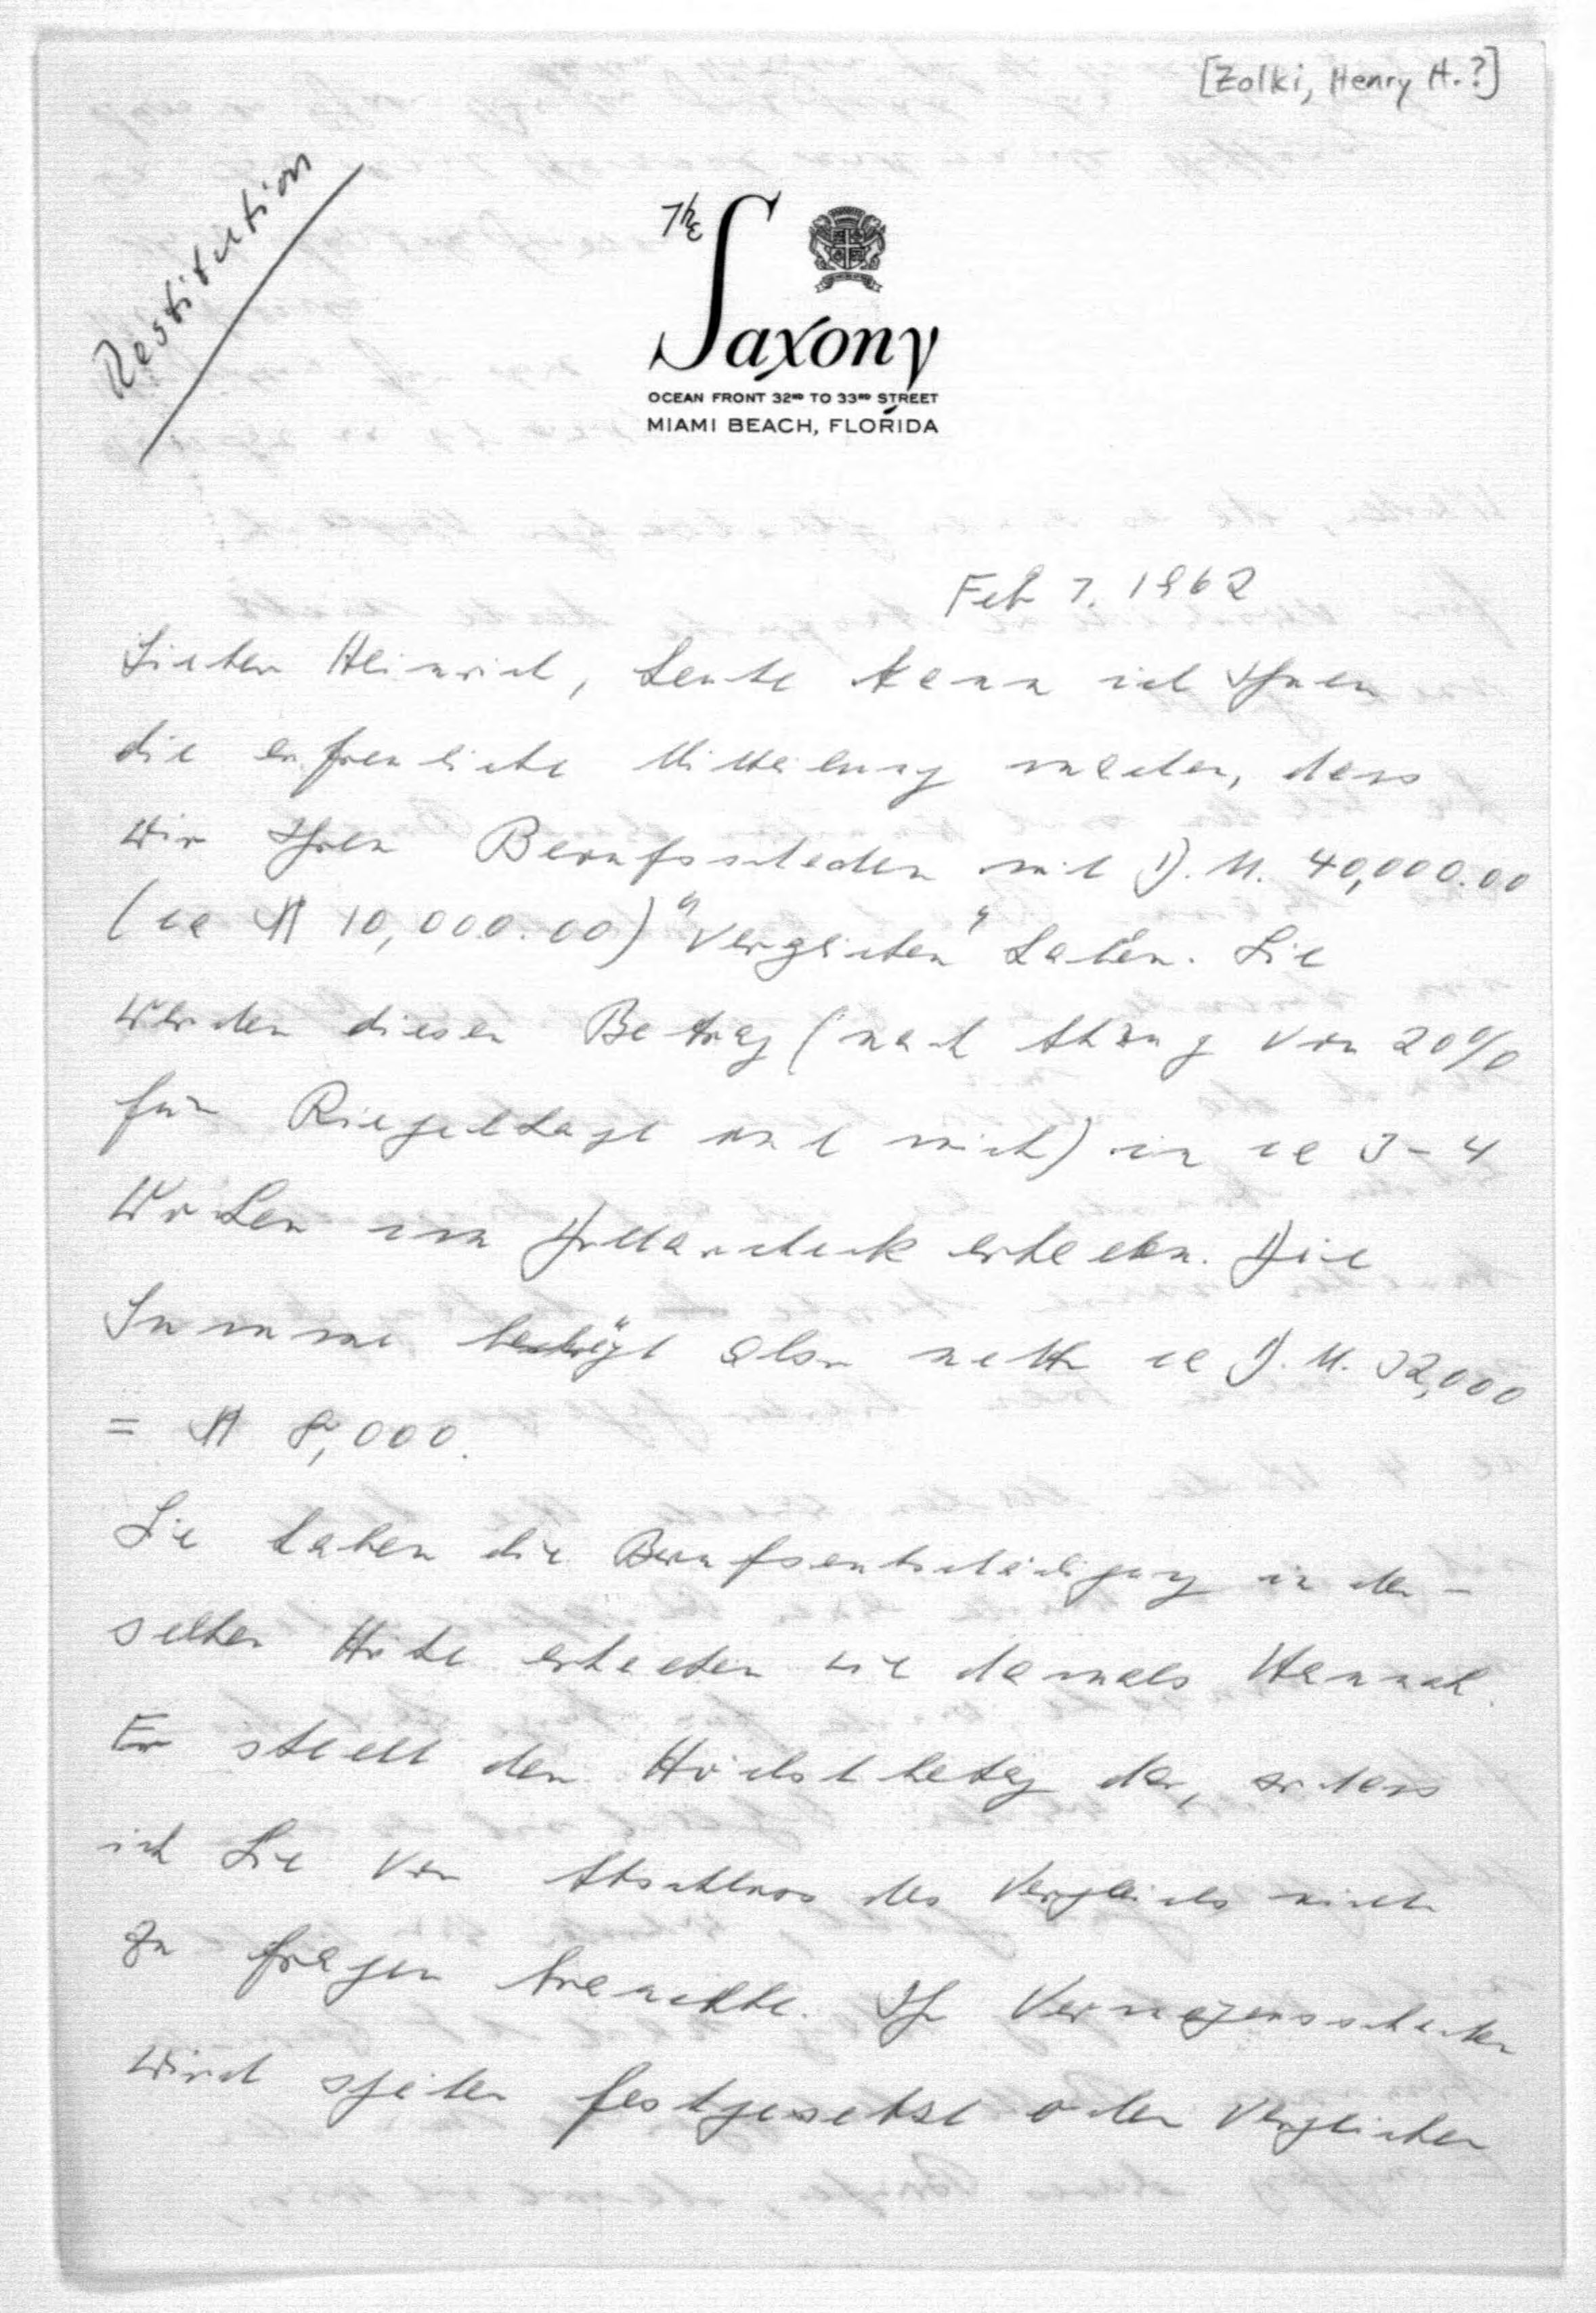 [Zolki, Henry H.?]
Restitution
The Saxony
OCEAN FRONT 32ND TO 33RD STREET
MIAMI BEACH, FLORIDA
Feb 7. 1962
Lieber Heinrich, heute kann ich Ihnen
die erfreuliche Mitteilung machen, dass
wir Ihren Berufsschaden mit D.M. 40,000.00
(ca $ 10,000.00) "verglichen" haben. Sie
werden diesen Betrag (nach Abzug von 20%
für Riegelhaupt und mich) in ca 3-4
Wochen im Dollarcheck erhalten. Die
Summe beträgt also netto ca D.M. 32,000
= $ 8,000.
Sie haben die Berufsentschädigung in der-
selben Höhe erhalten wie damals Hannah.
Er stellt den Höchstbetrag dar, sodass
ich Sie vor Abschluss des Vergleichs nicht
zu fragen brauchte. Ihr Vermögensschaden
wird später festgesetzt oder verglichen